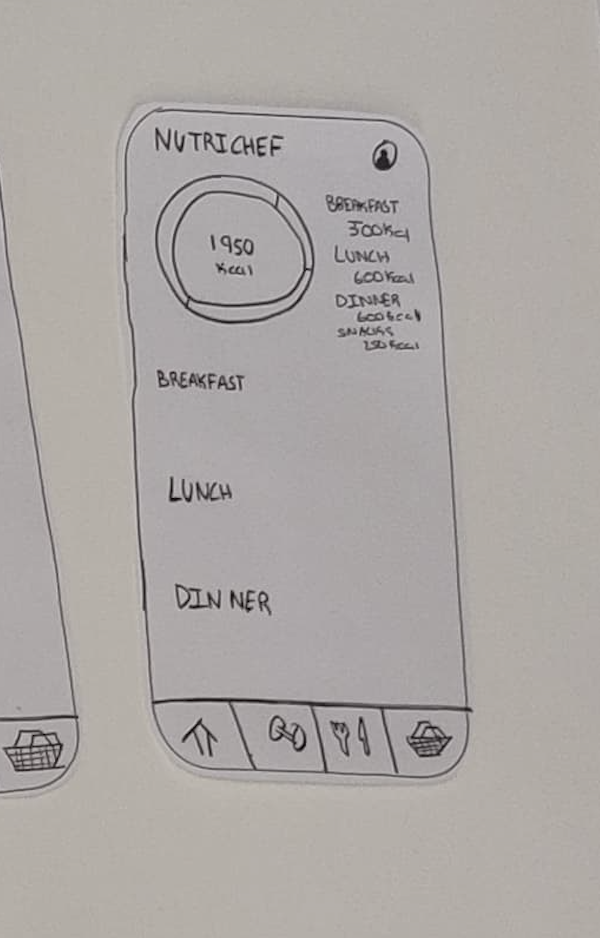 NUTRICHEF
1950
Kcal
BREAKFAST
500Kcl
LUNCH
600Kcal
DINNER
600kcal
SNACKS
250 Kcal
BREAKFAST
LUNCH
DINNER